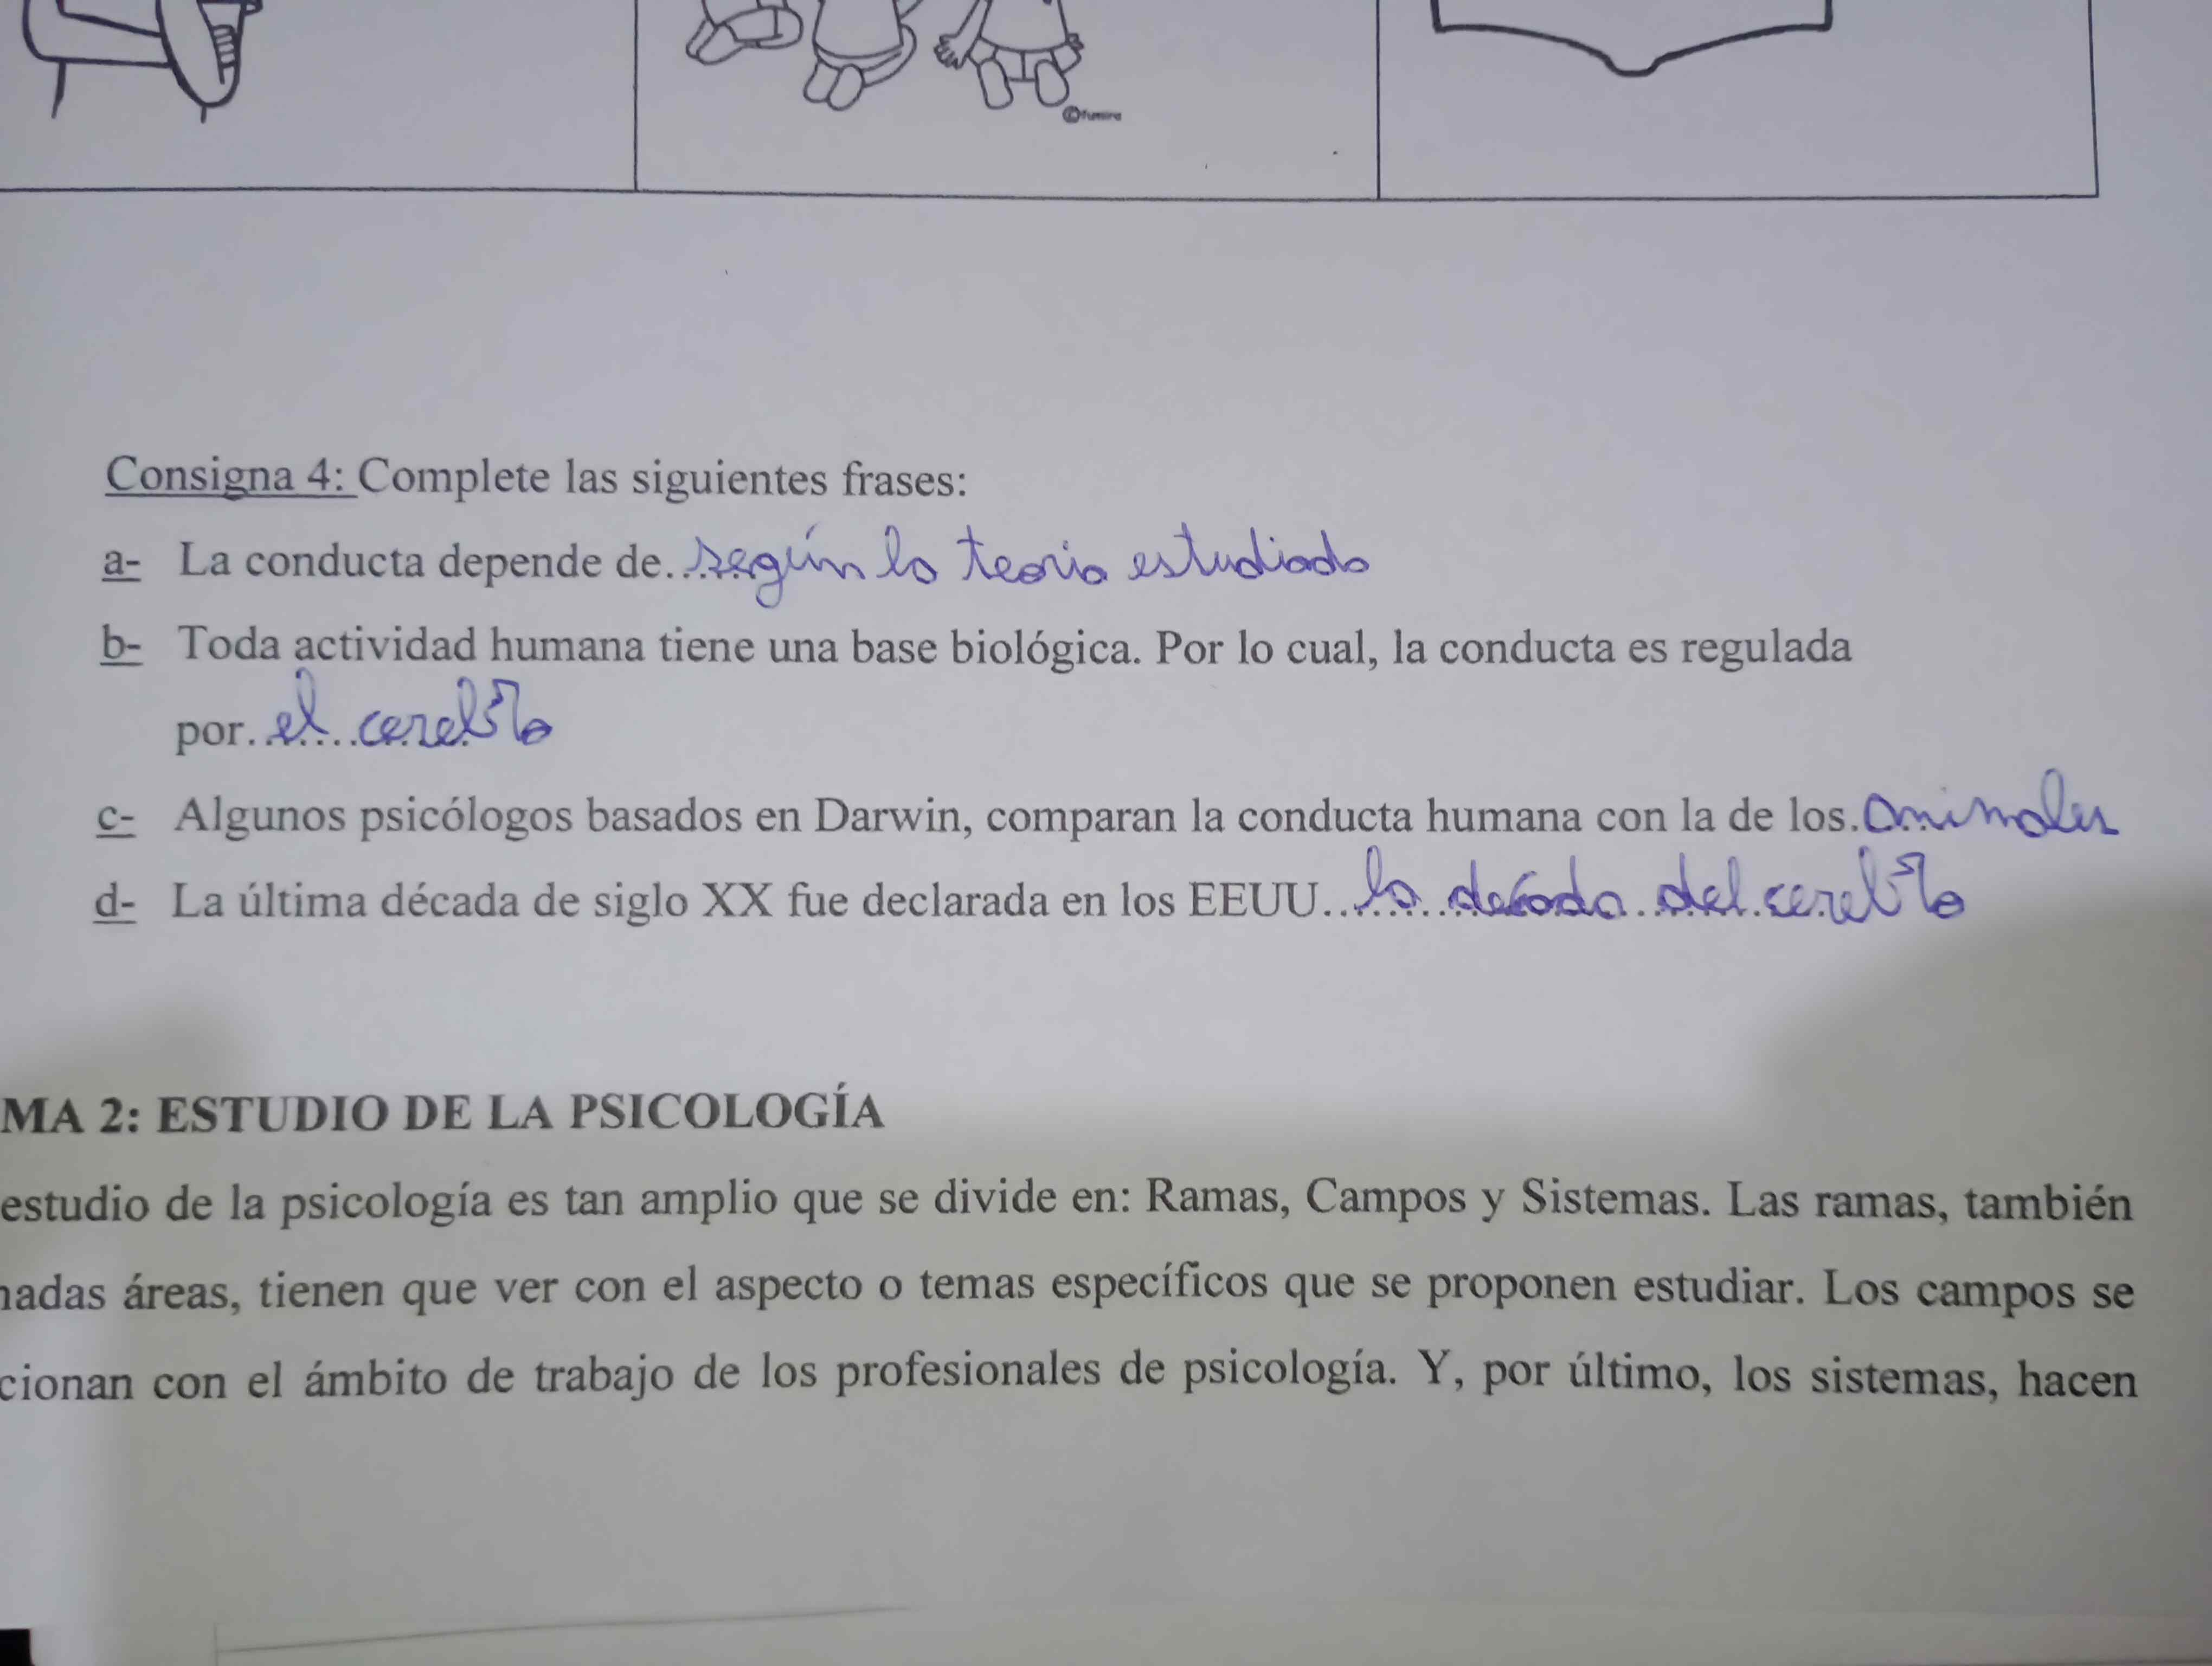 ©fumira
Consigna 4: Complete las siguientes frases:
a- La conducta depende de....... según la teoría estudiada
b- Toda actividad humana tiene una base biológica. Por lo cual, la conducta es regulada
por........... el cerebro
c- Algunos psicólogos basados en Darwin, comparan la conducta humana con la de los..... animales
d- La última década de siglo XX fue declarada en los EEUU.................... la década del cerebro
MA 2: ESTUDIO DE LA PSICOLOGÍA
estudio de la psicología es tan amplio que se divide en: Ramas, Campos y Sistemas. Las ramas, también
nadas áreas, tienen que ver con el aspecto o temas específicos que se proponen estudiar. Los campos se
cionan con el ámbito de trabajo de los profesionales de psicología. Y, por último, los sistemas, hacen